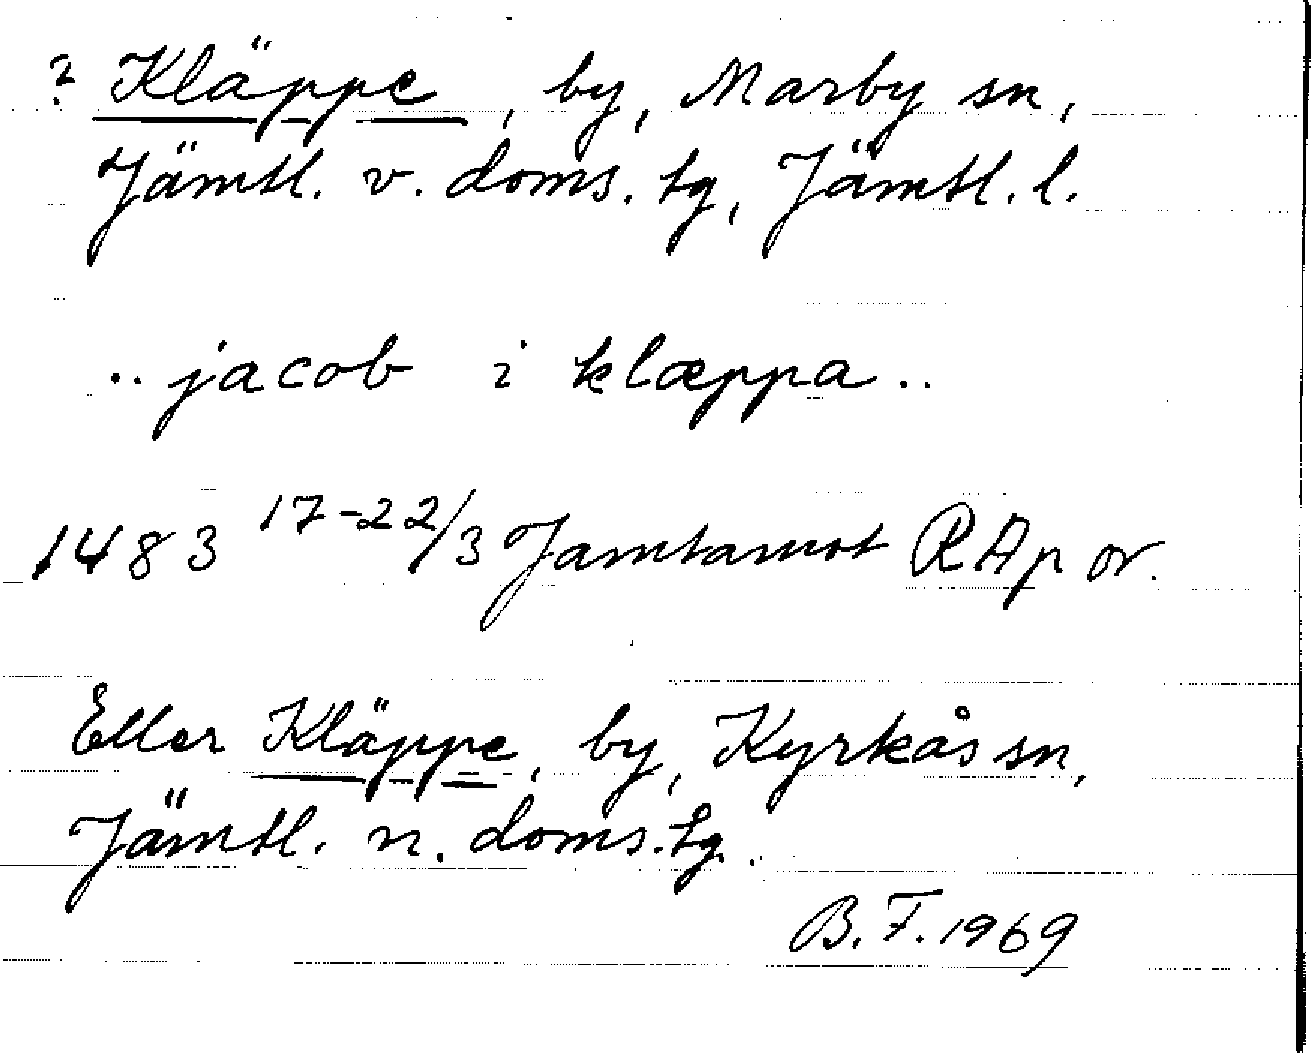 ? Kläppe, by, Marby sn,
Jämtl. v. doms. tg, Jämtl. l.
.. jacob i klæppa ..
1483 17-22/3 Jamtamot RAp or.
Eller Kläppe, by, Kyrkås sn,
Jämtl. n. doms. tg.
B. F. 1969